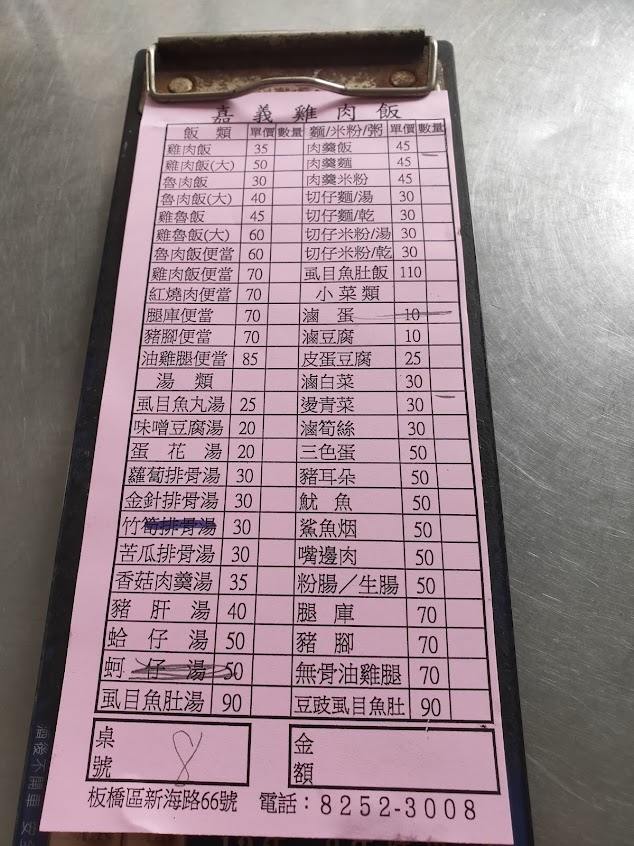 嘉義雞肉飯
飯類 單價 數量 麵/米粉/粥 單價 數量
雞肉飯 35 肉羹飯 45
雞肉飯(大) 50 肉羹麵 45
魯肉飯 30 肉羹米粉 45
魯肉飯(大) 40 切仔麵/湯 30
雞魯飯 45 切仔麵/乾 30
雞魯飯(大) 60 切仔米粉/湯 30
魯肉飯便當 60 切仔米粉/乾 30
雞肉飯便當 70 虱目魚肚飯 110
紅燒肉便當 70 小菜類
腿庫便當 70 滷蛋 10
豬腳便當 70 滷豆腐 10
油雞腿便當 85 皮蛋豆腐 25
湯類 滷白菜 30
虱目魚丸湯 25 燙青菜 30
味噌豆腐湯 20 滷筍絲 30
蛋花湯 20 三色蛋 50
蘿蔔排骨湯 30 豬耳朵 50
金針排骨湯 30 魷魚 50
竹筍排骨湯 30 鯊魚烟 50
苦瓜排骨湯 30 嘴邊肉 50
香菇肉羹湯 35 粉腸/生腸 50
豬肝湯 40 腿庫 70
蛤仔湯 50 豬腳 70
蚵仔湯 50 無骨油雞腿 70
虱目魚肚湯 90 豆豉虱目魚肚 90
桌號 8 金額
板橋區新海路66號 電話:8252-3008
酒後不開車 安